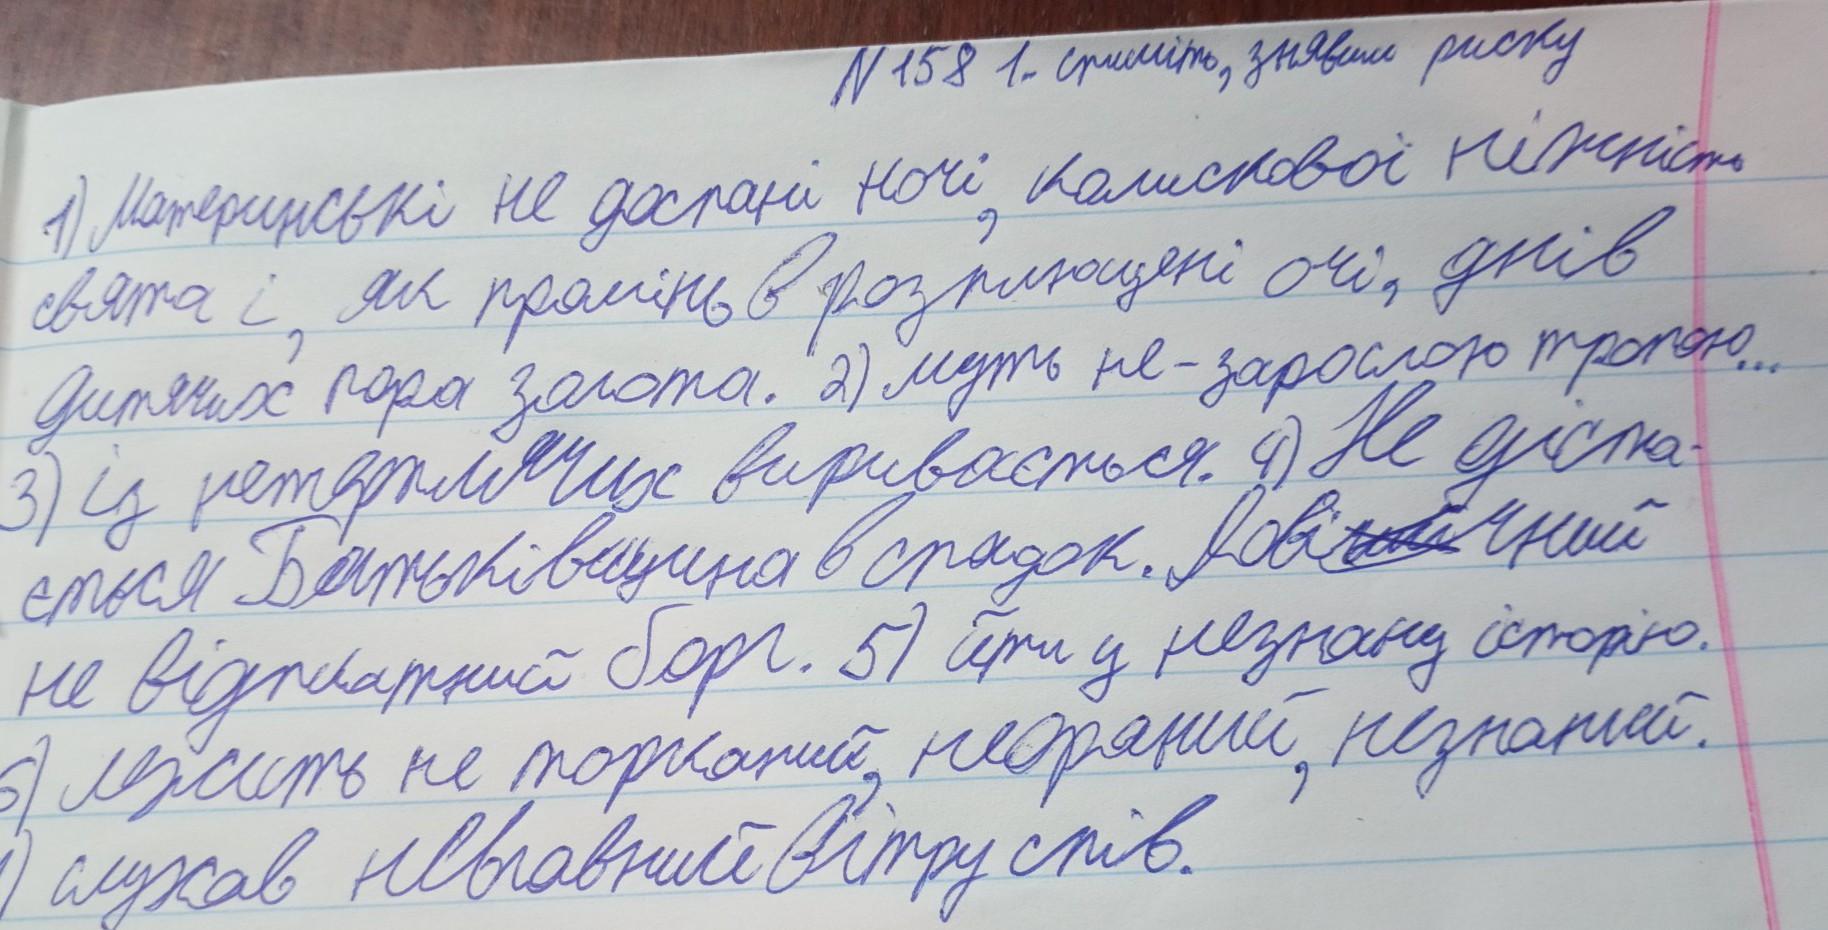 N 158 1. спишіть, знявши риску
1) Материнські не доспані ночі, колискової ніжність
свята і, як промінь в розплющені очі, днів
дитячих пора золота. 2) идуть не-зарослою тропою...
3) із нетерплячих виривається. 4) Не діста-
ється Батьківщина в спадок. Довічний
не відплатний борг. 5) йти у незнану історію.
6) лежить не торканий, неораний, незнаний.
7) слухав невгавний вітру спів.